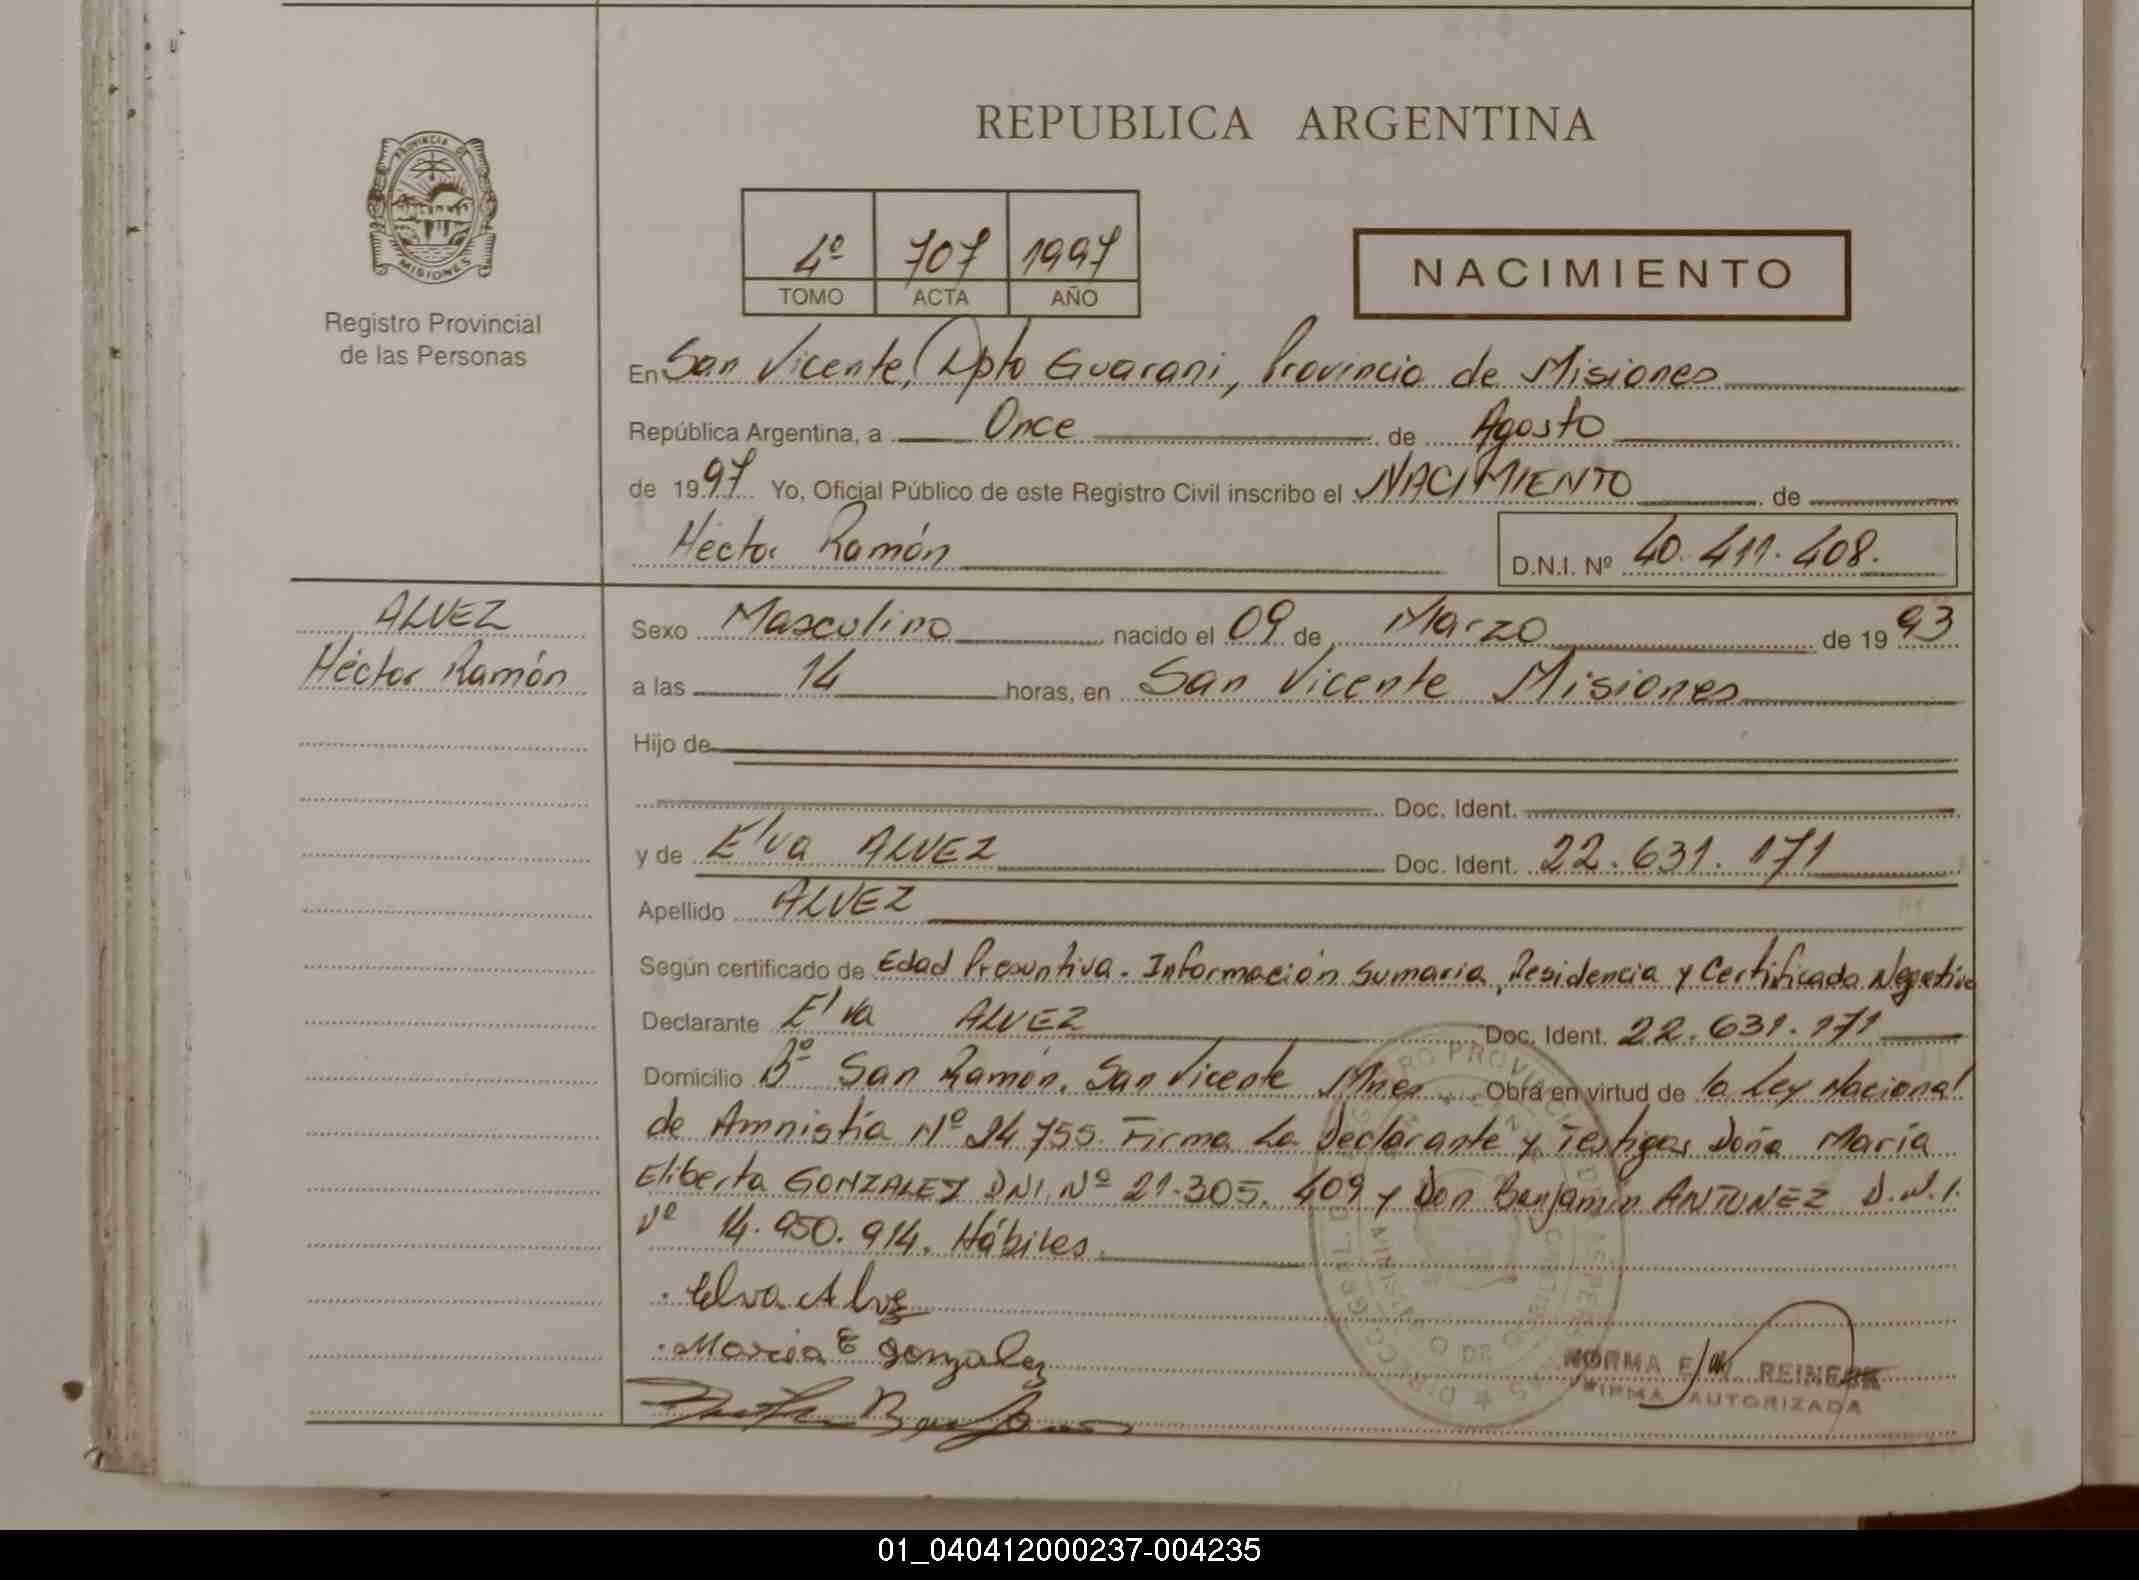 REPUBLICA ARGENTINA
PROVINCIA DE
MISIONES
Registro Provincial
de las Personas
4º 707 1997
TOMO ACTA AÑO
NACIMIENTO
En San Vicente, Dpto Guarani, Provincia de Misiones
República Argentina, a Once de Agosto
de 1997 Yo, Oficial Público de este Registro Civil inscribo el NACIMIENTO de
Héctor Ramón D.N.I. Nº 40.411.408.
ALVEZ
Héctor Ramón
Sexo Masculino nacido el 09 de Marzo de 1993
a las 14 horas, en San Vicente Misiones
Hijo de
Doc. Ident.
y de Elva ALVEZ Doc. Ident. 22.631.171
Apellido ALVEZ
Según certificado de Edad Presuntiva. Información Sumaria, Residencia y Certificado Negativo
Declarante Elva ALVEZ Doc. Ident. 22.631.171
Domicilio Bº San Ramón. San Vicente Mnes Obra en virtud de la Ley Nacional
de Amnistía Nº 24755. Firma La Declarante y Testigos Doña María
Eliberta GONZALEZ DNI Nº 21.305.409 y Don Benjamín ANTUNEZ D.N.I.
Nº 14.950.914. Hábiles.
Elva Alvez
Maria E Gonzalez
NORMA REINECK
FIRMA AUTORIZADA
01_040412000237-004235